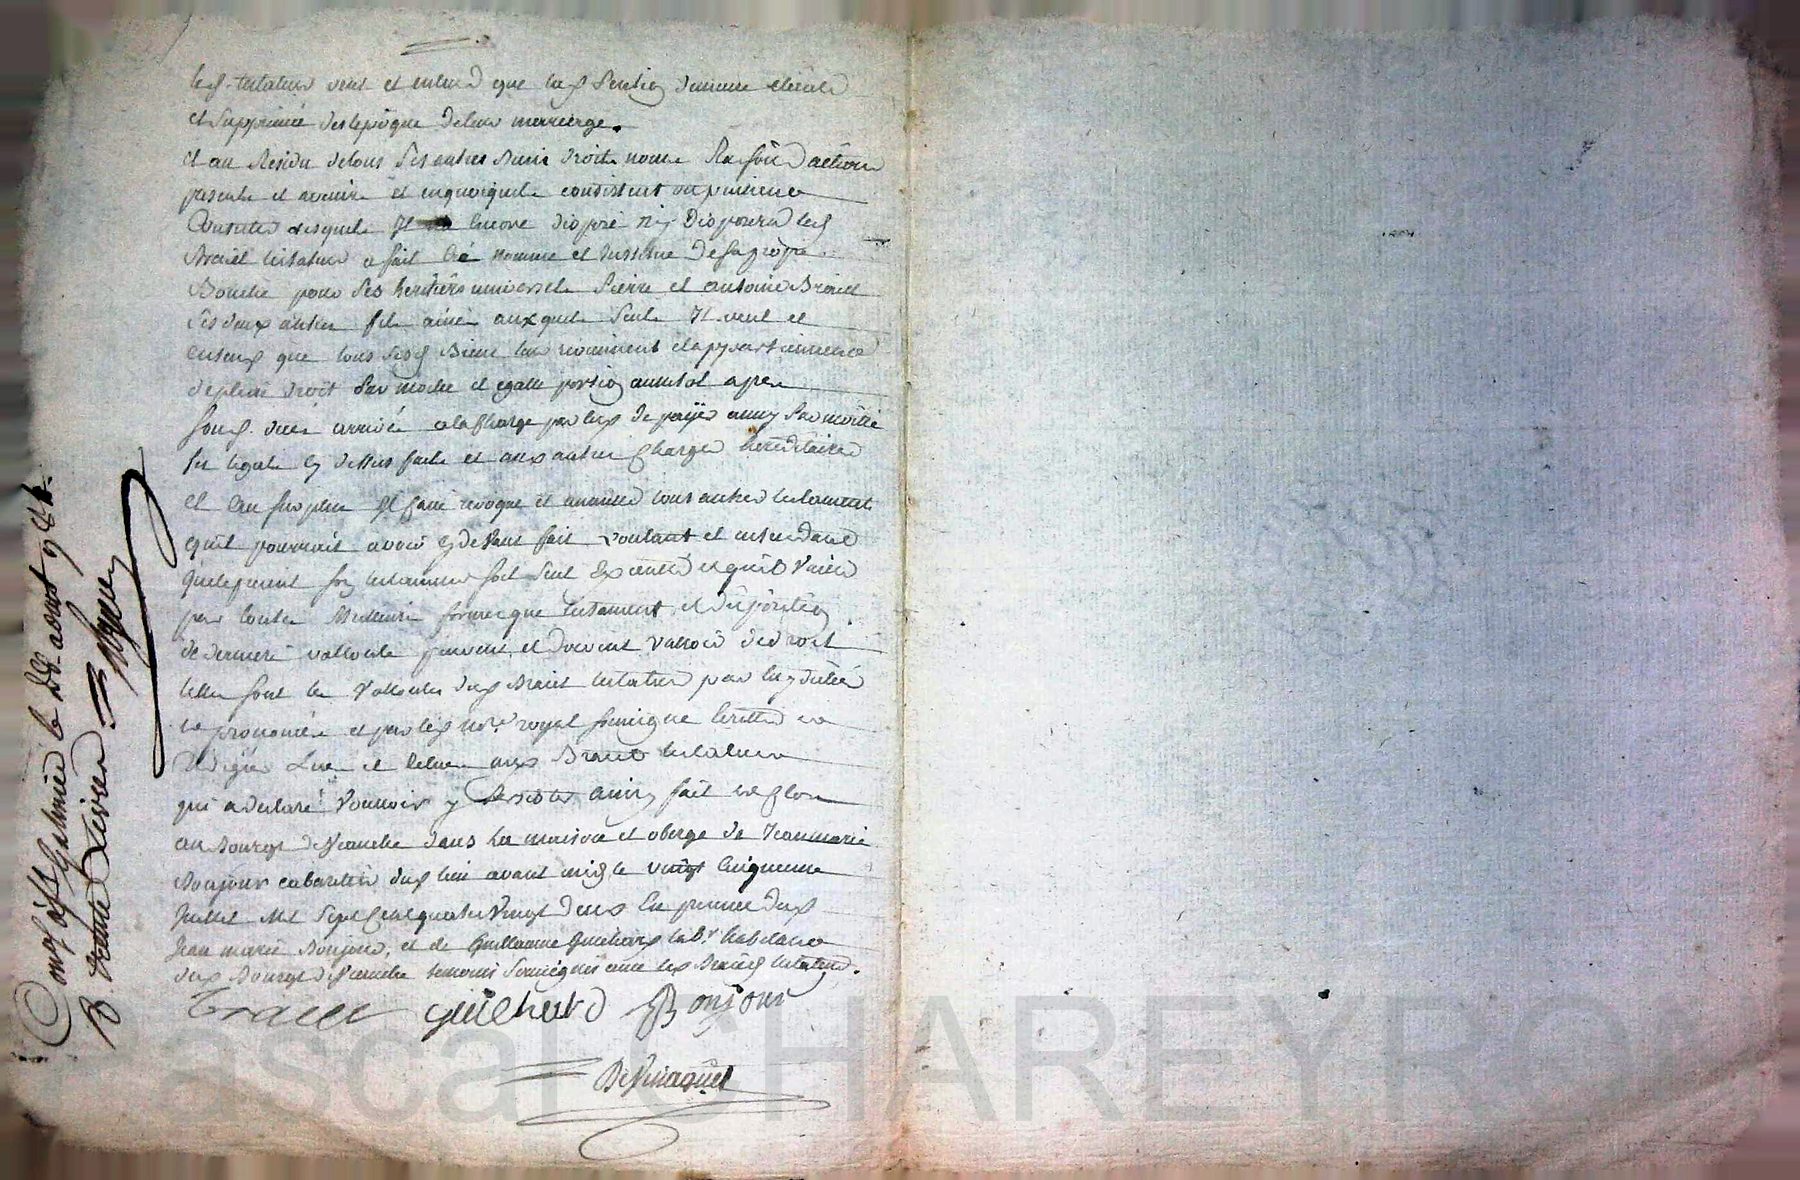 led. testateur veut et entend que lad. pention demeure éteinte
et supprimée des lepoque de leur marriage.
et au Residu de tous ses autres biens droits noms Raisons actions
presents et avenirs et en quoiquils consistent ou puissent
Consister desquels Il encore disposé ny disposera led.
Braiet testateur a fait Créé nommé et Institué de sa propre
Bouche pour ses heritiers universels Pierre et antoine Braiet
ses deux autres fils ainés auxquels seuls Il veut et
entend que tous sesd. Biens leur reviennent et appartiennent
de plein droit par moitié et egalle portion aussitot apres
son d. deces arrivé a la Charge par eux de payer aussy par moitié
les legats cy dessus faits et aux autres Charges hereditaires
et au surplus Il casse revoque et annulle tous autres testaments
quil pourrait avoir cy devant fait voulant et entendant
que le present son testament soit seul Executé et quil vaille
par toutes Meilleures formes que testament et disposition
de derniere vollonté peuvent et doivent valloir de droit
telles sont les Vollontés dud. Braiet testateur par luy dictées
et prononcées et par led. nore. royal soussigné Ecrittes et
Redigées Lues et Relues aud. Braiet testateur
qui a declaré Vouloir y Persister ainsy fait et Clos
au Bourg de dans la maison et oberge de Jean marie
Bonjour cabaretier dud. lieu avant midy le vingt Cinquieme
Juillet Mil Sept Cent quatre Vingt Deux En presence dud.
Jean marie Bonjour, et de Guillaume Guichard labr. habitants
dud. Bourg de temoins soussignés avec led. Braiet testateur.
Braiet Guichard Bonjour
Con.lé à St Galmier le août 1782.
R. trente Livres